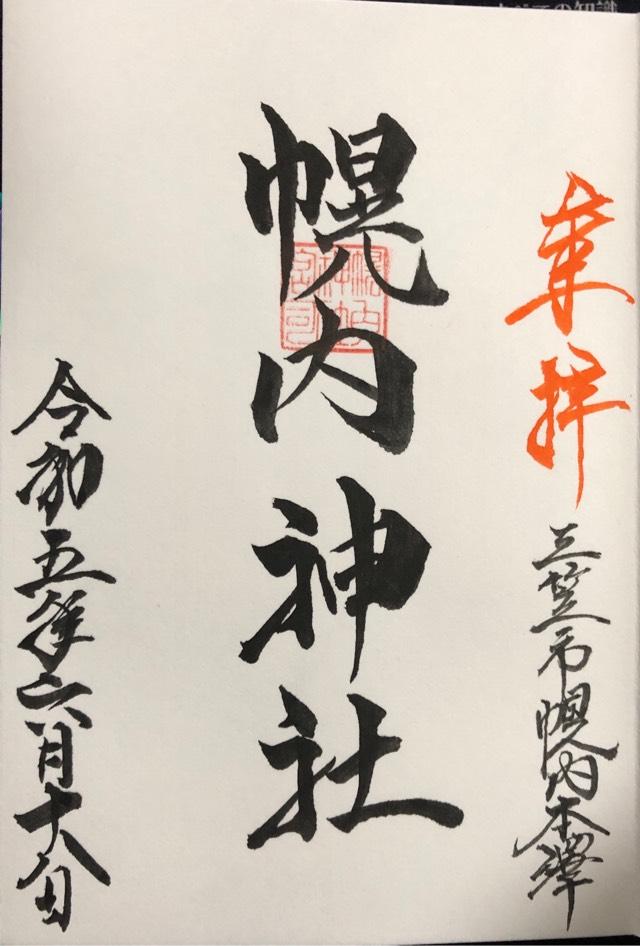 奉拝
三笠市幌内本澤
幌内神社
令和五年六月十八日
の知識